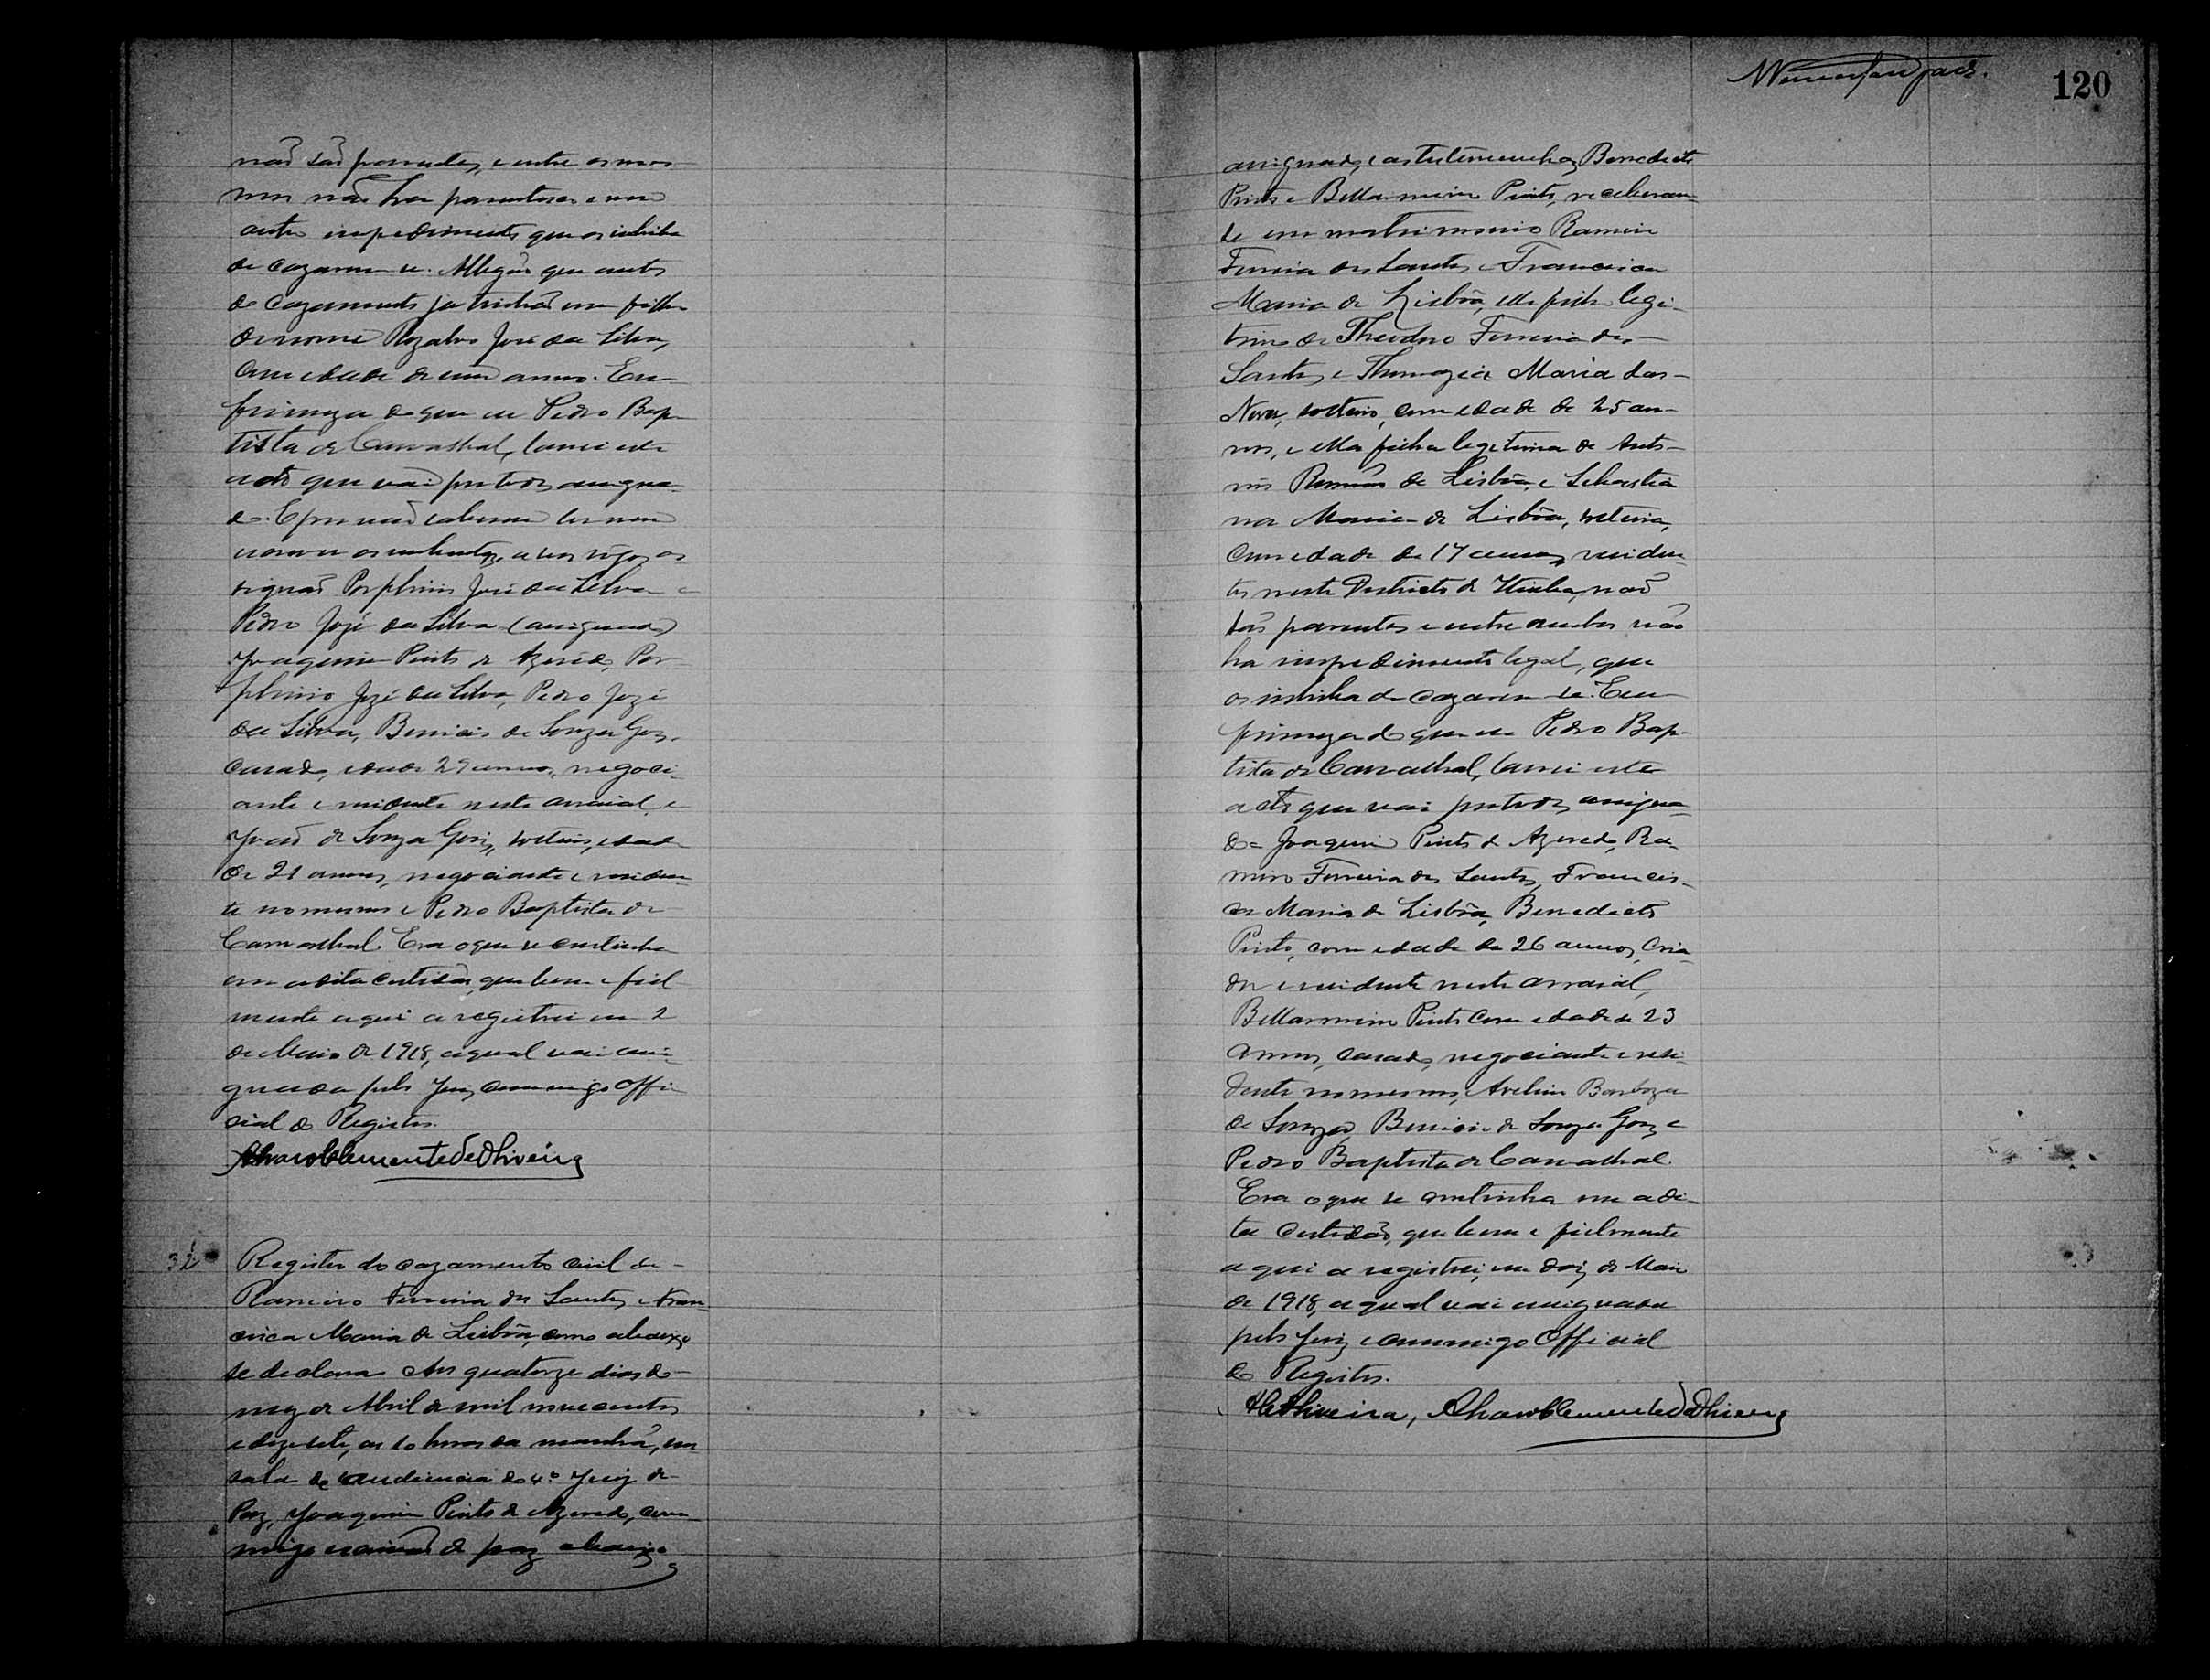 não são parentes, e entre os mes-
mos não ha parentesco e nem
outro impedimento que os inhiba
de cazarem-se. Allegão que antes
do cazamento ja tinhão um filho
de nome Rozalvo José da Silva,
com edade de um anno. Em
firmeza do que eu Pedro Bap-
tista de Carvalhal, lavrei este
acto que vai por todos assigna-
do. E por não saberem ler nem
escrever os nubentes, a seus rogos as-
signão Porphirio José da Silva e
Pedro Jozé da Silva (assignados)
Joaquim Pinto de Azevedo, Por-
phirio Jozé da Silva, Pedro Jozé
da Silva, Benicio de Souza Goz,
casado, edade 29 annos, negoci-
ante e residente neste arraial, e
João de Souza Goz, solteiro, edade
de 21 annos, negociante e residen-
te no mesmo e Pedro Baptista de
Carvalhal. Era o que se continha
em a dita certidão, que bem e fiel
mente aqui a registrei em 2
de Maio de 1918, a qual vai assi-
gnada pelo Juiz commigo Offi-
cial do Registro.
Alvaro Clemente de Oliveira
32
Registro do cazamento civil de
Ramiro Ferreira dos Santos e Fran
cisca Maria de Lisbôa, como abaixo
se declara. Aos quatorze dias do
mez de Abril de mil novecentos
e dezesete, as 10 horas da manhã, em
sala de audiencia do 4º Juiz de
Paz, Joaquim Pinto de Azevedo, com
migo escrivão de paz abaixo
120
assignado, e as testemunhas Benedicto
Pinto e Bellarmino Pinto, receberam-
se em matrimonio Ramiro
Ferreira dos Santos e Francisca
Maria de Lisbôa, elle filho legi-
timo de Theodoro Ferreira dos
Santos e Maria das
Neves, solteiro, com edade de 25 an-
nos, e ella filha legitima de Anto-
nio Romão de Lisbôa, e Sebastia
na Maria de Lisbôa, solteira,
com edade de 17 annos, residen-
tes neste Districto de, não
são parentes e entre ambos não
ha impedimento legal, que
os inhiba de cazarem-se. Em
firmeza do que eu Pedro Bap-
tista de Carvalhal, lavrei este
acto que vai por todos assigna-
do Joaquim Pinto de Azevedo, Ra-
miro Ferreira dos Santos, Francis-
ca Maria de Lisbôa, Benedicto
Pinto, com edade de 26 annos, cria-
dor e residente neste arraial,
Bellarmino Pinto com edade de 23
annos, casado, negociante e resi-
dente no mesmo, Avelino Barboza
de Souza, Benicio de Souza Goz e
Pedro Baptista de Carvalhal.
Era o que se continha em a di-
ta certidão, que bem e fielmente
aqui a registrei, em dois de Maio
de 1918, a qual vai assignada
pelo Juiz e commigo Official
do Registro.
Oliveira, Alvaro Clemente de Oliveira